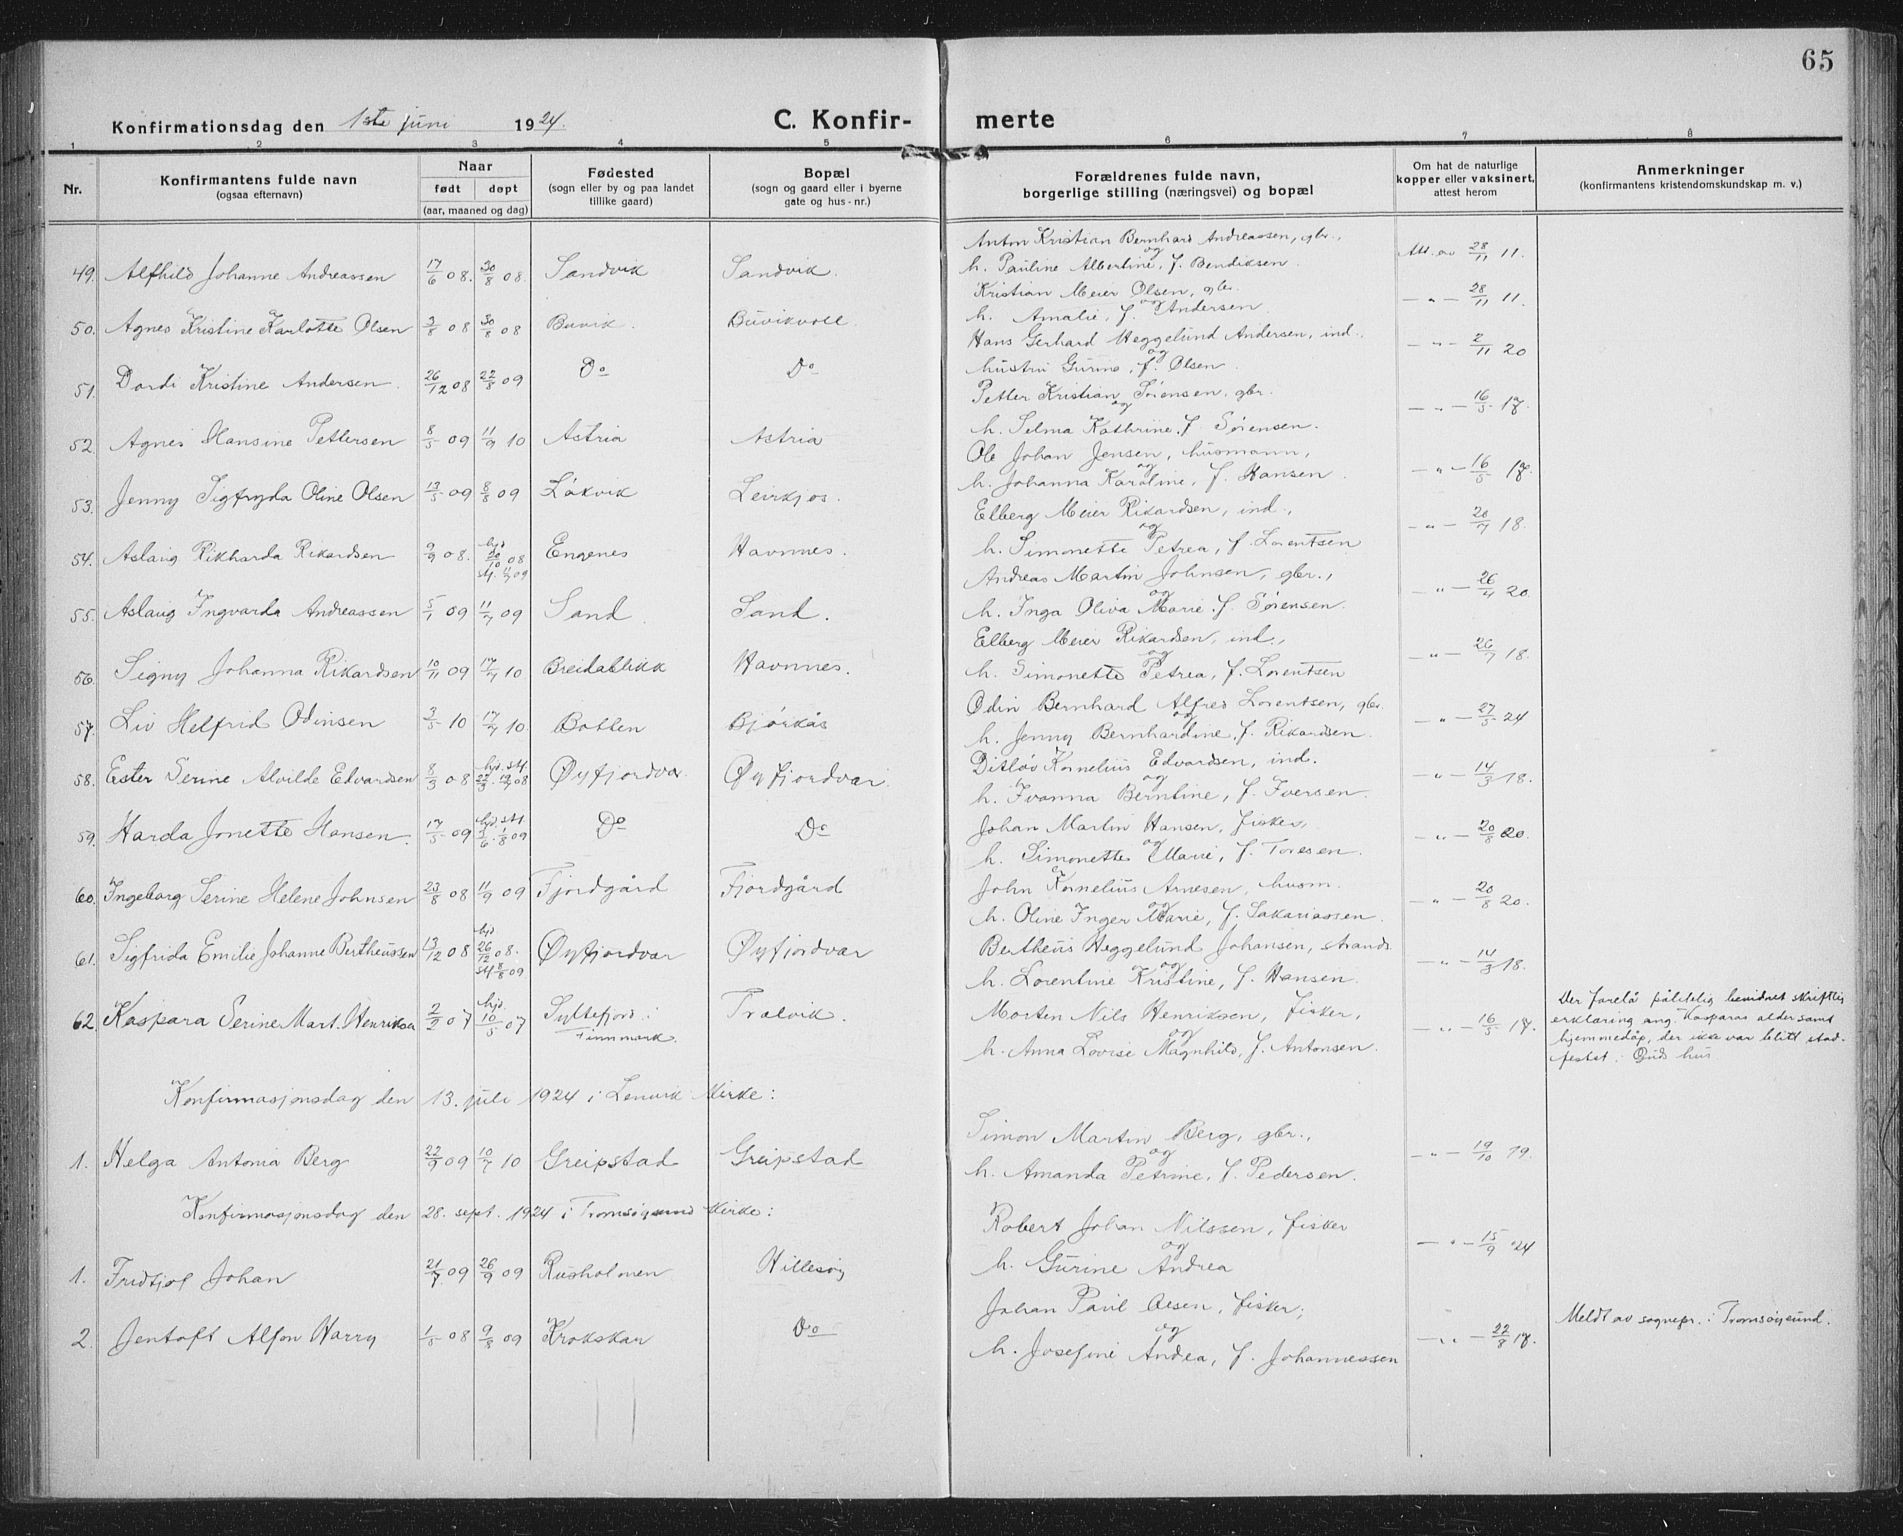 65
Konfirmationsdag den 1ste juni 1924. C. Konfir- merte
1 2 3 4 5 6 7 8
Nr. Konfirmantens fulde navn (ogsaa efternavn) Naar født døpt (aar, maaned og dag) Fødested (sogn eller by og paa landet tillike gaard) Bopæl (sogn og gaard eller i byerne gate og hus-nr.) Forældrenes fulde navn, borgerlige stilling (næringsvei) og bopæl Om hat de naturlige kopper eller vaksinert, attest herom Anmerkninger (konfirmantens kristendomskundskap m. v.)
49. Alfhild Johanne Andreassen 17/6 08. 30/8 08 Sandvik Sandvik. Anton Kristian Bernhard Andreassen, gbr., og h. Pauline Albertine, f. Bendiksen. Att. av 28/11 11.
50. Agnes Kristine Karlotte Olsen 3/8 08 30/8 08 Buvik. Buvikvoll Kristian Meier Olsen, gbr. og h. Amalie, f. Andersen. — " — 28/11 11.
51. Dordi Kristine Andersen. 26/12 08 22/8 09 Do Do Hans Gerhard Heggelund Andersen, ind. og hustru Gurine, f. Olsen. — " — 2/11 20
52. Agnes Hansine Pettersen 8/5 09 11/9 10 Astria Astria Petter Kristian Sørensen, gbr. og h. Selma Kathrine, f. Sørensen. — " — 16/5 17.
53. Jenny Sigfryda Oline Olsen 13/5 09 8/8 09 Løkvik Leirkjos Ole Johan Jensen, husmann, og h. Johanna Karoline, f. Hansen. — " — 16/5 17.
54. Aslaug Rikharda Rikardsen 9/9 08. hjd 20/10 08 st. 11/7 09 Engenes Havnnes. Elberg Meier Rikardsen, ind., og h. Simonette Petrea, f. Lorentsen — " — 26/7 18.
55. Aslaug Ingvarda Andreassen 5/1 09 11/7 09 Sand. Sand. Andreas Martin Johnsen, gbr., og h. Inga Oliva Marie, f. Sørensen. — " — 26/4 20.
56. Signy Johanna Rikardsen 10/11 09 17/7 10 Breidablikk Havnnes. Elberg Meier Rikardsen, ind., og h. Simonette Petrea, f. Lorentsen — " — 26/7 18.
57. Liv Helfrid Odinsen 3/5 10 17/7 10. Botten Bjørkås Odin Bernhard Alfred Lorentsen, gbr. og h. Jenny Bernhardine, f. Rikardsen. — " — 27/5 24
58. Ester Serine Alvilde Edvardsen 8/3 08 hjd. st. 22/3. 12/7 08 Øyfjordvær Øyfjordvær. Ditløv Kornelius Edvardsen, ind. og h. Ivanna Berntine, f. Iversen. — " — 14/3 18.
59. Harda Jonette Hansen. 17/5 09 hjd. st. 1/6. 1/8 09 Do Do Johan Martin Hansen, fisker, og h. Simonette Marie, f. Toresen. — " — 20/8 20.
60. Ingeborg Serine Helene Johnsen 23/8 08 11/9 09 Fjordgård Fjordgård John Kornelius Arnesen, husm. og h. Oline Inger Marie, f. Sakariassen. — " — 20/8 20.
61. Sigfrida Emilie Johanne Bertheussen 13/12 08 hjd 26/12 08. st 8/8 09 Øyfjordvær Øyfjordvær Bertheus Heggelund Johansen, strands. og h. Lorentine Kristine, f. Hansen. — " — 14/3 18.
62. Kaspara Serine Mart. Henriksen 2/2 07 hjd. 10/5 07 Syltefjord i Finnmark. Trælvik. Morten Nils Henriksen, fisker, og h. Anna Lovise Magnhild, f. Antonsen. — " — 16/5 17. Der forelå pålitelig bevidnet skriftlig
erklæring ang. Kasparas alder samt
hjemmedåp, der ikke var blitt stad-
festet i Guds hus
Konfirmasjonsdag den 13. juli 1924 i Lenvik Kirke:
1. Helga Antonia Berg 22/9 09 10/7 10 Greipstad Greipstad Simon Martin Berg, gbr., og h. Amanda Petrine, f. Pedersen. — " — 19/10 19.
Konfirmasjonsdag den 28. sept. 1924 i Tromsøysund Kirke:
1. Fridtjof Johan 21/7 09 26/9 09 Rusholmen Hillesøy Robert Johan Nilssen, fisker og h. Gurine Andrea — " — 15/9 24
2. Jentoft Alfon Harry 1/5 08 9/8 09 Krokskar Do Johan Paul Olsen, fisker, og h. Josefine Andrea, f. Johannessen — " — 22/8 17. Meldt av sognepr. i Tromsøysund.